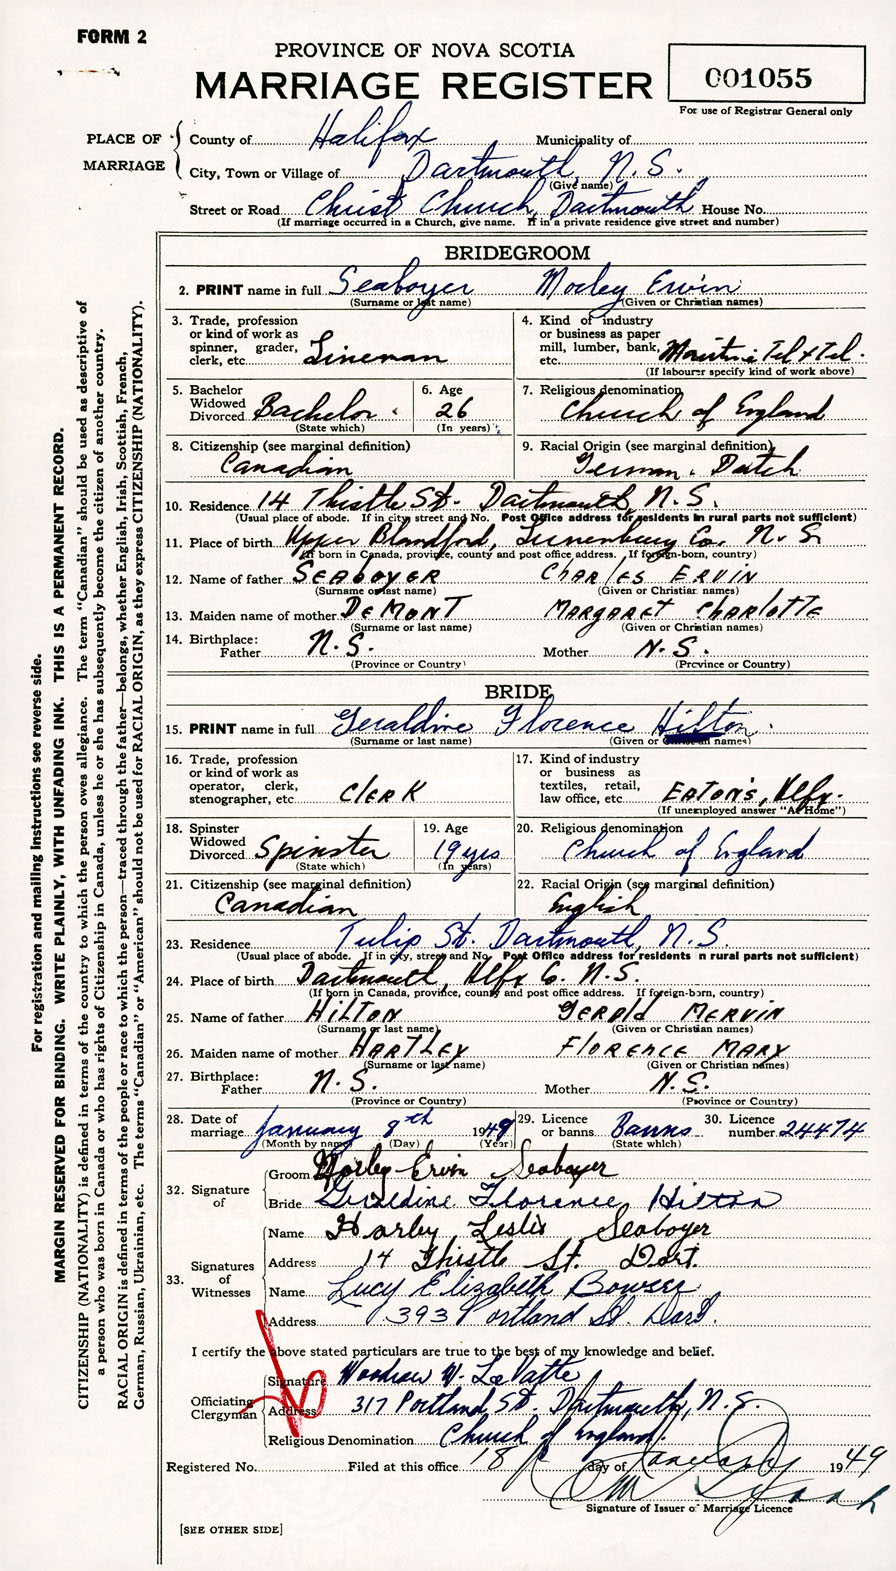 FORM 2
PROVINCE OF NOVA SCOTIA
MARRIAGE REGISTER
001055
For use of Registrar General only
PLACE OF MARRIAGE
County of Halifax Municipality of
City, Town or Village of Dartmouth, N.S.
(Give name)
Street or Road Christ Church, Dartmouth House No.
(If marriage occurred in a Church, give name. If in a private residence give street and number)
BRIDEGROOM
2. PRINT name in full Seaboyer Morley Ervin
(Surname or last name) (Given or Christian names)
3. Trade, profession or kind of work as spinner, grader, clerk, etc. Lineman
4. Kind of industry or business as paper mill, lumber, bank, etc. Maritime Tel & Tel.
(If labourer specify kind of work above)
5. Bachelor Widowed Divorced Bachelor
(State which)
6. Age 26
(In years)
7. Religious denomination Church of England
8. Citizenship (see marginal definition) Canadian
9. Racial Origin (see marginal definition) German. Dutch
10. Residence 14 Thistle St. Dartmouth, N.S.
(Usual place of abode. If in city street and No. Post Office address for residents in rural parts not sufficient)
11. Place of birth Upper Blandford, Lunenburg Co. N.S.
(If born in Canada, province, county and post office address. If foreign-born, country)
12. Name of father SEABOYER CHARLES ERVIN
(Surname or last name) (Given or Christian names)
13. Maiden name of mother DEMONT MARGARET CHARLOTTE
(Surname or last name) (Given or Christian names)
14. Birthplace: Father N.S. Mother N.S.
(Province or Country) (Province or Country)
BRIDE
15. PRINT name in full Geraldine Florence Hilton
(Surname or last name) (Given or Christian names)
16. Trade, profession or kind of work as operator, clerk, stenographer, etc CLERK
17. Kind of industry or business as textiles, retail, law office, etc. EATON'S, Hlfx.
(If unemployed answer "At Home")
18. Spinster Widowed Divorced Spinster
(State which)
19. Age 19 yrs
(In years)
20. Religious denomination Church of England
21. Citizenship (see marginal definition) Canadian
22. Racial Origin (see marginal definition) English
23. Residence Tulip St. Dartmouth, N.S.
(Usual place of abode. If in city, street and No. Post Office address for residents in rural parts not sufficient)
24. Place of birth Dartmouth, Hlfx Co. N.S.
(If born in Canada, province, county and post office address. If foreign-born, country)
25. Name of father HILTON GERALD MERVIN
(Surname or last name) (Given or Christian names)
26. Maiden name of mother HARTLEY FLORENCE MARY
(Surname or last name) (Given or Christian names)
27. Birthplace: Father N.S. Mother N.S.
(Province or Country) (Province or Country)
28. Date of marriage January 8th 1949
(Month by name) (Day) (Year)
29. Licence or banns Banns
(State which)
30. Licence number 24474
32. Signature of
Groom Morley Ervin Seaboyer
Bride Geraldine Florence Hilton
33. Signatures of Witnesses
Name Harley Leslie Seaboyer
Address 14 Thistle St. Dart.
Name Lucy Elizabeth Bowser
Address 393 Portland St. Dart.
I certify the above stated particulars are true to the best of my knowledge and belief.
Officiating Clergyman
Signature Woodrow W. LeVatte
Address 317 Portland St. Dartmouth, N.S.
Religious Denomination Church of England.
Registered No. Filed at this office 18 day of January 1949
Signature of Issuer of Marriage Licence
[SEE OTHER SIDE]
For registration and mailing instructions see reverse side.
MARGIN RESERVED FOR BINDING. WRITE PLAINLY, WITH UNFADING INK. THIS IS A PERMANENT RECORD.
CITIZENSHIP (NATIONALITY) is defined in terms of the country to which the person owes allegiance. The term "Canadian" should be used as descriptive of
a person who was born in Canada or who has rights of Citizenship in Canada, unless he or she has subsequently become the citizen of another country.
RACIAL ORIGIN is defined in terms of the people or race to which the person—traced through the father—belongs, whether English, Irish, Scottish, French,
German, Russian, Ukrainian, etc. The terms "Canadian" or "American" should not be used for RACIAL ORIGIN, as they express CITIZENSHIP (NATIONALITY).